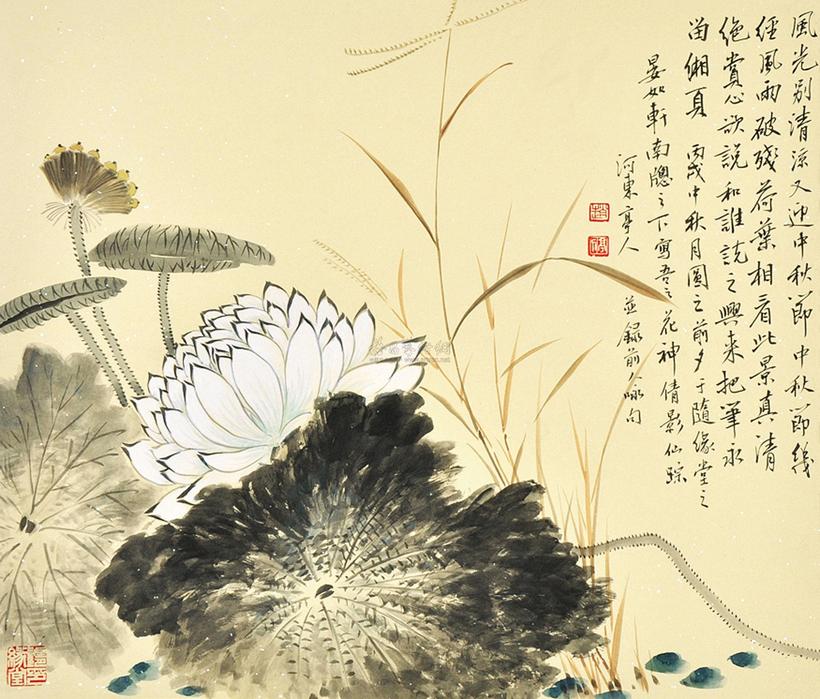 風光别清涼又迎中秋節中秋節幾
經風雨破殘荷葉相看此景真清
絶賞心欲説和誰説之興来把筆永
留缃頁 丙戌中秋月圓之前夕于隨緣堂之
晏如軒南牕之下寫吾之花神倩影仙踪
河東亭人 並録前人咏句
隨緣堂